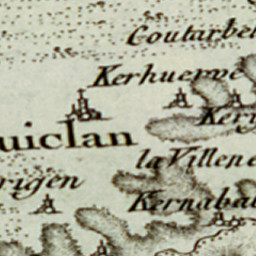 Coutarbel
Kerhuerne
Kery
uiclan
la Villene
rigen
Kernabat